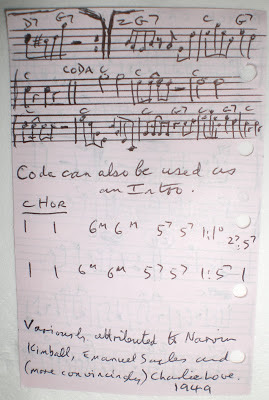 D7 G7 2 G7 C G7
C CODA C C
C G7 C G7 C G7 C
Coda can also be used as
an Intro.
CHOR
1 1 6ᴹ 6ᴹ 5⁷ 5⁷ 1:1° 2⁷:5⁷
1 1 6ᴹ 6ᴹ 5⁷ 5⁷ 1:5⁷ 1
Variously attributed to Narvin
Kimball, Emanuel Sayles and
(more convincingly) Charlie Love.
1949